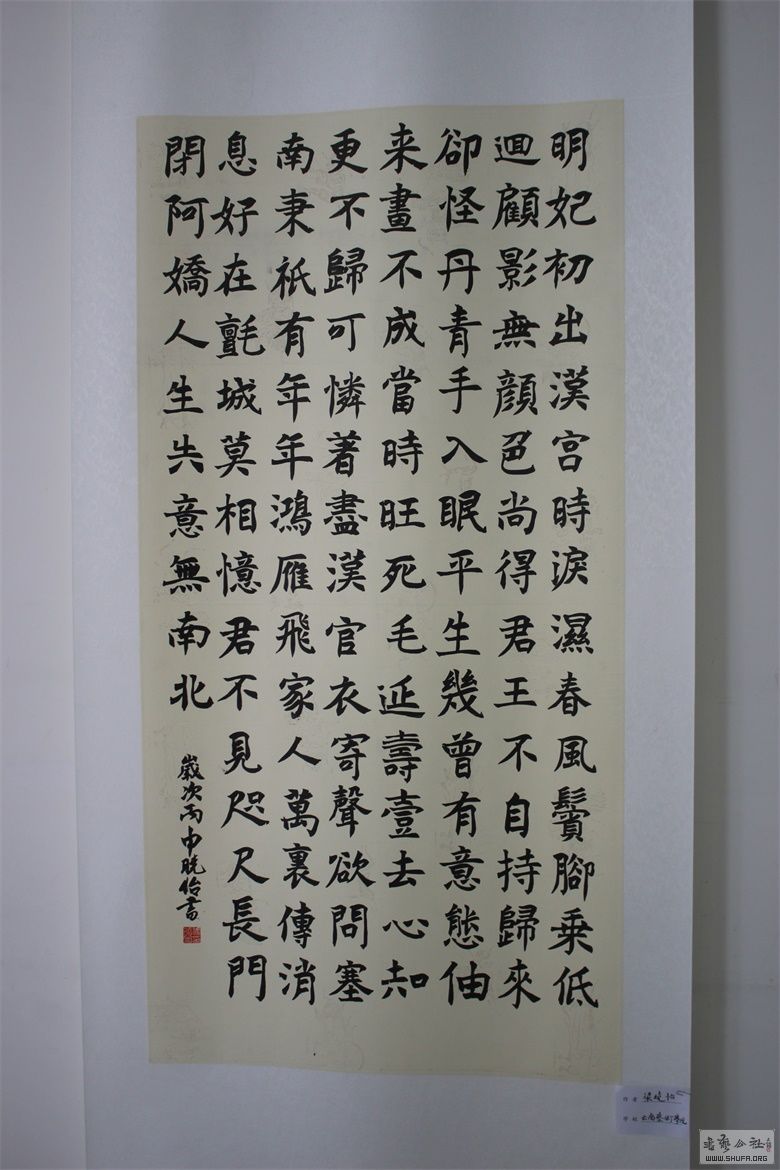 明妃初出漢宮時淚濕春風鬢腳乗低
迴顧影無顏色尚得君王不自持歸來
卻怪丹青手入眠平生幾曾有意態伷
来畫不成當時旺死毛延壽壹去心知
更不歸可憐著盡漢官衣寄聲欲問塞
南秉祇有年年鴻雁飛家人萬裏傳消
息好在氈城莫相憶君不見咫尺長門
閉阿嬌人生失意無南北
歲次丙申晓怡書
作者 梁晓怡
学校 云南艺术学院
書藝公社
WWW.SHUFA.ORG